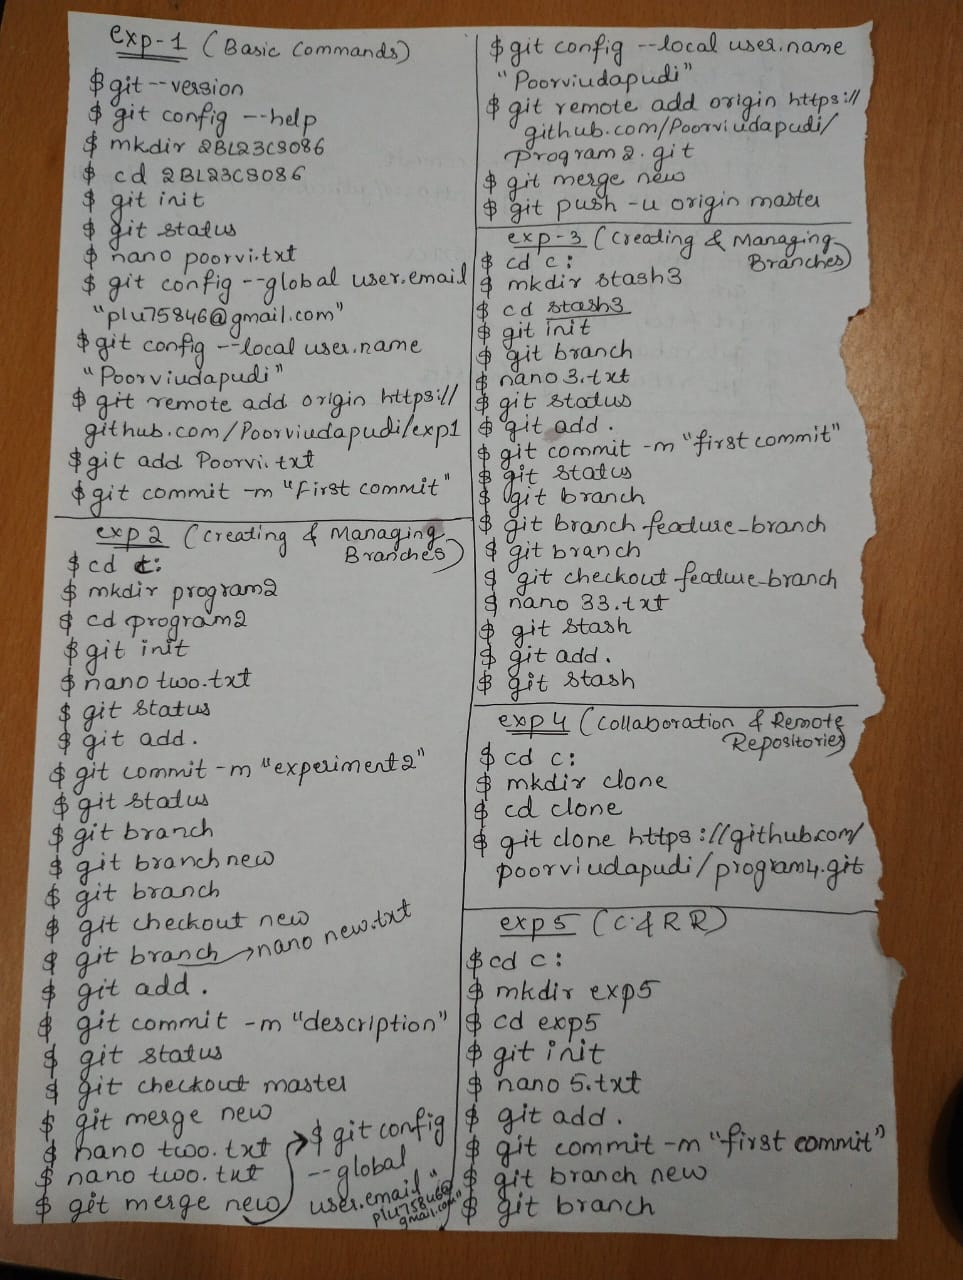 exp-1 (Basic Commands)
$ git --version
$ git config --help
$ mkdir 2BL23CS086
$ cd 2BL23CS086
$ git init
$ git status
$ nano poorvi.txt
$ git config --global user.email
"plu75846@gmail.com"
$ git config --local user.name
"Poorviudapudi"
$ git remote add origin https://
github.com/Poorviudapudi/exp1
$ git add Poorvi.txt
$ git commit -m "First commit"
exp 2 (Creating & Managing
Branches)
$ cd c:
$ mkdir program2
$ cd program2
$ git init
$ nano two.txt
$ git status
$ git add .
$ git commit -m "experiment2"
$ git status
$ git branch
$ git branch new
$ git branch
$ git checkout new
$ git branch → nano new.txt
$ git add .
$ git commit -m "description"
$ git status
$ git checkout master
$ git merge new
$ nano two.txt
$ nano two.txt
$ git merge new
→ $ git config
--global
user.email "
plu75846@
gmail.com"
$ git config --local user.name
"Poorviudapudi"
$ git remote add origin https://
github.com/Poorviudapudi/
program2.git
$ git merge new
$ git push -u origin master
exp-3 (Creating & Managing
Branches)
$ cd c:
$ mkdir stash3
$ cd stash3
$ git init
$ git branch
$ nano 3.txt
$ git status
$ git add .
$ git commit -m "first commit"
$ git status
$ git branch
$ git branch feature_branch
$ git branch
$ git checkout feature_branch
$ nano 33.txt
$ git stash
$ git add .
$ git stash
exp 4 (Collaboration & Remote
Repositories)
$ cd c:
$ mkdir clone
$ cd clone
$ git clone https://github.com/
poorviudapudi/program4.git
exp 5 (C & RR)
$ cd c:
$ mkdir exp5
$ cd exp5
$ git init
$ nano 5.txt
$ git add .
$ git commit -m "first commit"
$ git branch new
$ git branch